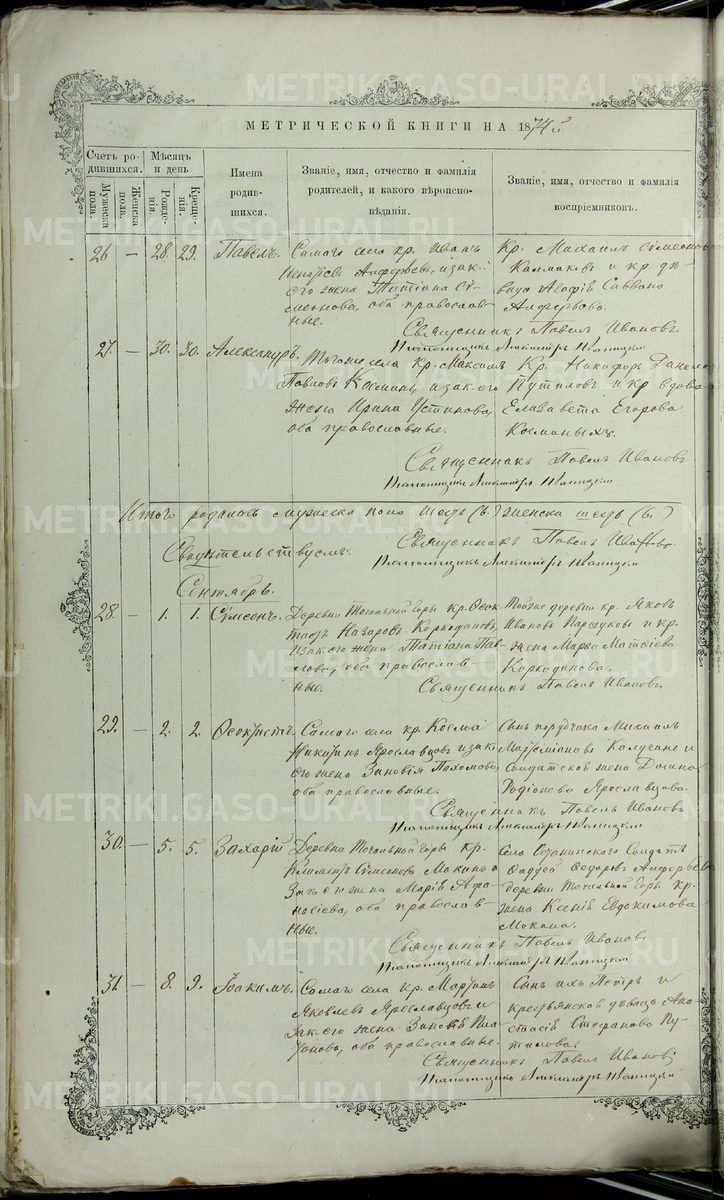 МЕТРИЧЕСКОЙ КНИГИ НА 1874й
Счетъ родившихся.
Мужеска пола.
Женска пола.
Мѣсяцъ и день
Рожденія.
Крещенія.
Имена родившихся.
Званіе, имя, отчество и фамилія родителей, и какого вѣроисповѣданія.
Званіе, имя, отчество и фамилія воспріемниковъ.
26 — 28. 29. Павелъ.
Самаго села кр. Иванъ
Алферьевъ, и зак.
его жена Татіана Сѵ
меонова, оба православ
ные.
Кр. Михаилъ Сѵмеоновъ
Калмаковъ и кр. дѣ
вица Агафія Саввина
Алферьева.
Священникъ Павелъ Ивановъ.
27. — 30. 30. Александръ.
Тогоже села кр. Максимъ
Павловъ Косминъ, и зак. его
жена Ирина Устинова,
оба православные.
Кр. Никифоръ Данило
Путиловъ и кр. вдова
Елизавета Егорова
Косминыхъ.
Священникъ Павелъ Ивановъ
Итого родилось мужеска пола шесть (6.) женска шесть (6.)
Свидѣтельствуемъ:
Священникъ Павелъ Ивановъ
Сентябрь.
28 — 1. 1. Сѵмеонъ.
Деревни Точильной Горы кр. Ѳеок
тистъ Назаровъ Коркодиновъ,
и зак. его жена Татіана Пав
лова, оба православ
ные.
Тойже деревни кр. Яковъ
Ивановъ Паршуковъ и кр.
жена Марѳа Матѳіева
Коркодинова.
Священникъ Павелъ Ивановъ
29. — 2. 2. Ѳеоктистъ.
Самаго села кр. Косма
Никитинъ Ярославцовъ и зак.
его жена Зиновія Пахомова
оба православные.
Сынъ Михаилъ
Калугинъ и
Солдатская жена
Родіонова Ярославцова.
Священникъ Павелъ Ивановъ
30. — 5. 5. Захарій
Деревни Точильной Горы кр.
Климентъ Сѵмеоновъ Мокинъ и
зак. его жена Марія Аѳа
насіева, оба православ
ные.
Села Солдатъ
Ѳаддей Ѳедоровъ Алферьевъ
деревни Точильной Горы кр.
жена Ксенія Евдокимова
Мокина.
Священникъ Павелъ Ивановъ
31. — 8. 9. Іоакимъ.
Самаго села кр. Мартинъ
Яковлевъ Ярославцовъ и
зак. его жена Зиновія Пла
тонова, оба православные.
Сынъ ихъ Петръ и
крестьянская дѣвица Ана
стасія Стефанова Пу
тилова.
Священникъ Павелъ Ивановъ
METRIKI.GASO-URAL.RU